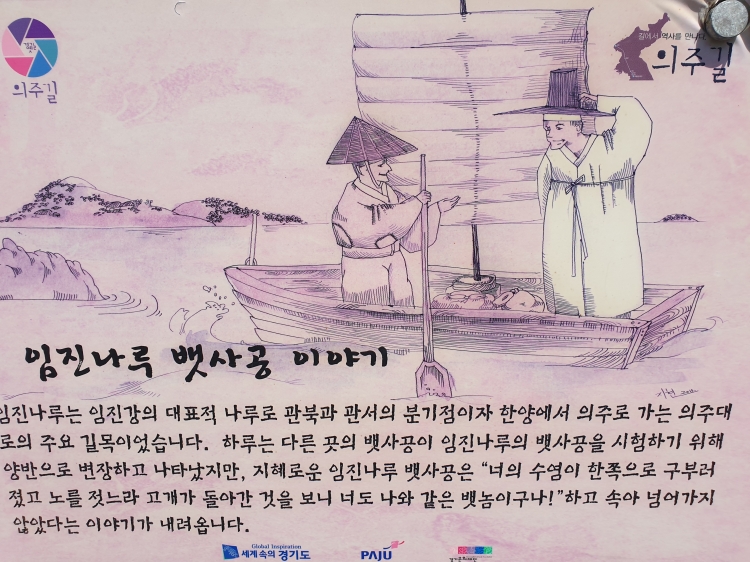 의주길
길에서 역사를 만나다
의주길
임진나루 뱃사공 이야기
임진나루는 임진강의 대표적 나루로 관북과 관서의 분기점이자 한양에서 의주로 가는 의주대
로의 주요 길목이었습니다. 하루는 다른 곳의 뱃사공이 임진나루의 뱃사공을 시험하기 위해
양반으로 변장하고 나타났지만, 지혜로운 임진나루 뱃사공은 “너의 수염이 한쪽으로 구부러
졌고 노를 젓느라 고개가 돌아간 것을 보니 너도 나와 같은 뱃놈이구나!”하고 속아 넘어가지
않았다는 이야기가 내려옵니다.
Global Inspiration
세계속의 경기도
PAJU
경기문화재단